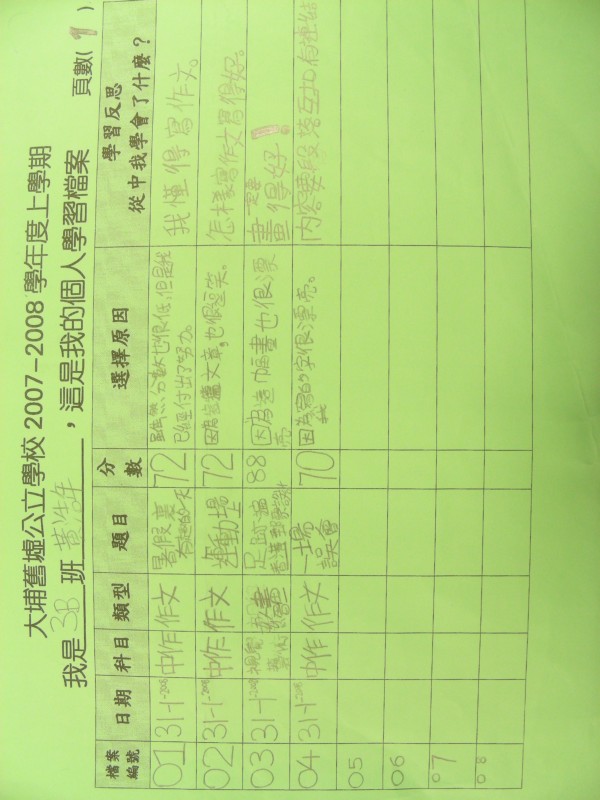 大埔舊墟公立學校 2007-2008 學年度上學期
我是 3B 班 黃浩年，這是我的個人學習檔案 頁數( 1 )
檔案編號 日期 科目 類型 題目 分數 選擇原因 學習反思 從中我學會了什麼？
01 31-1-2008 中作 作文 暑假裏有趣的一天 72 雖然分數也很低,但是我已經付出了努力。 我懂得寫作文。
02 31-1-2008 中作 作文 運動場 72 因為這篇文章,也很好笑。 怎樣寫作文寫得好。
03 31-1-2008 視覺藝術 88 因為這幅畫也很漂亮 畫得好!
04 31-1-2008 中作 作文 一場誤會 70 因為我寫的字很漂亮。 內容要段落互相有連結
05
06
07
08